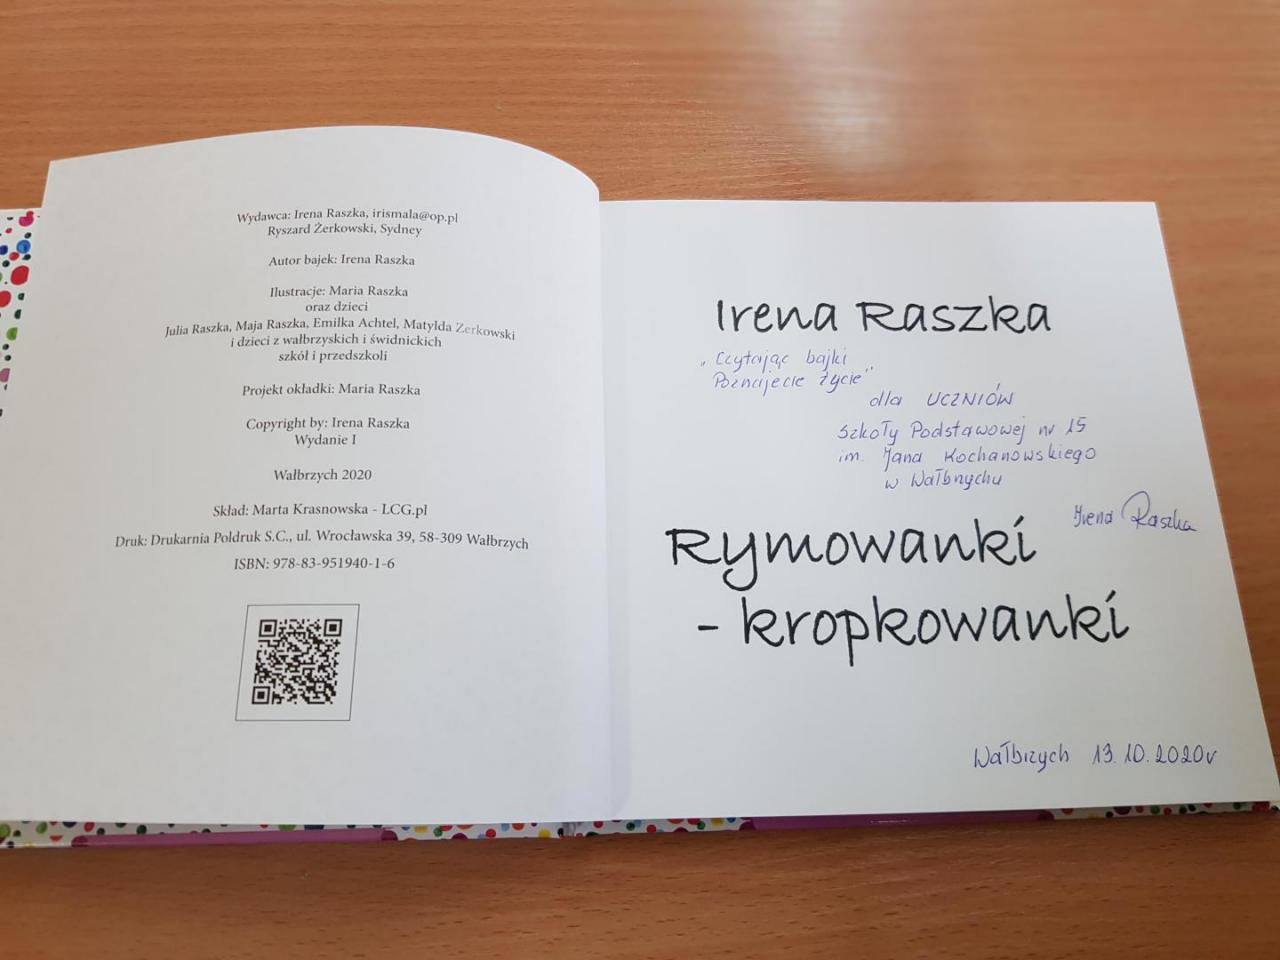 Wydawca: Irena Raszka, irismala@op.pl
Ryszard Żerkowski, Sydney
Autor bajek: Irena Raszka
Ilustracje: Maria Raszka
oraz dzieci
Julia Raszka, Maja Raszka, Emilka Achtel, Matylda Zerkowski
i dzieci z wałbrzyskich i świdnickich
szkół i przedszkoli
Projekt okładki: Maria Raszka
Copyright by: Irena Raszka
Wydanie I
Wałbrzych 2020
Skład: Marta Krasnowska - LCG.pl
Druk: Drukarnia Poldruk S.C., ul. Wrocławska 39, 58-309 Wałbrzych
ISBN: 978-83-951940-1-6
Irena Raszka
„Czytając bajki
Poznajecie życie"
dla UCZNIÓW
Szkoły Podstawowej nr 15
im. Jana Kochanowskiego
w Wałbrzychu
Irena Raszka
Rymowanki
- kropkowanki
Wałbrzych 13.10.2020r